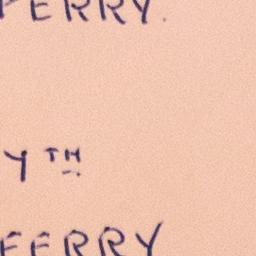 PERRY.
Y TH
FERRY